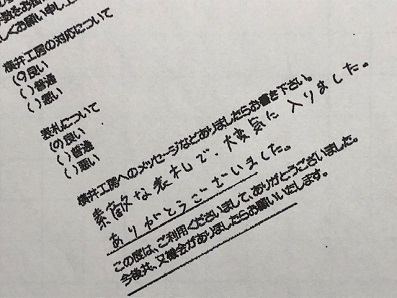 しくお願い申し上
横井工房の対応について
(○)良い
( )普通
( )悪い
表札について
(○)良い
( )普通
( )悪い
横井工房へのメッセージなどありましたらお書き下さい。
素敵な表札で、大変気に入りました。
ありがとうございました。
この度は、ご利用くださいまして、ありがとうございました。
今後共、又機会がありましたらお願いいたします。